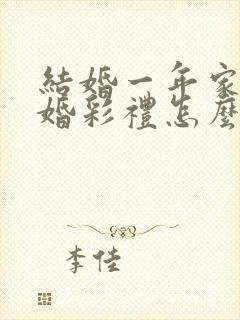 結婚一年家
婚彩禮怎麼
李佳